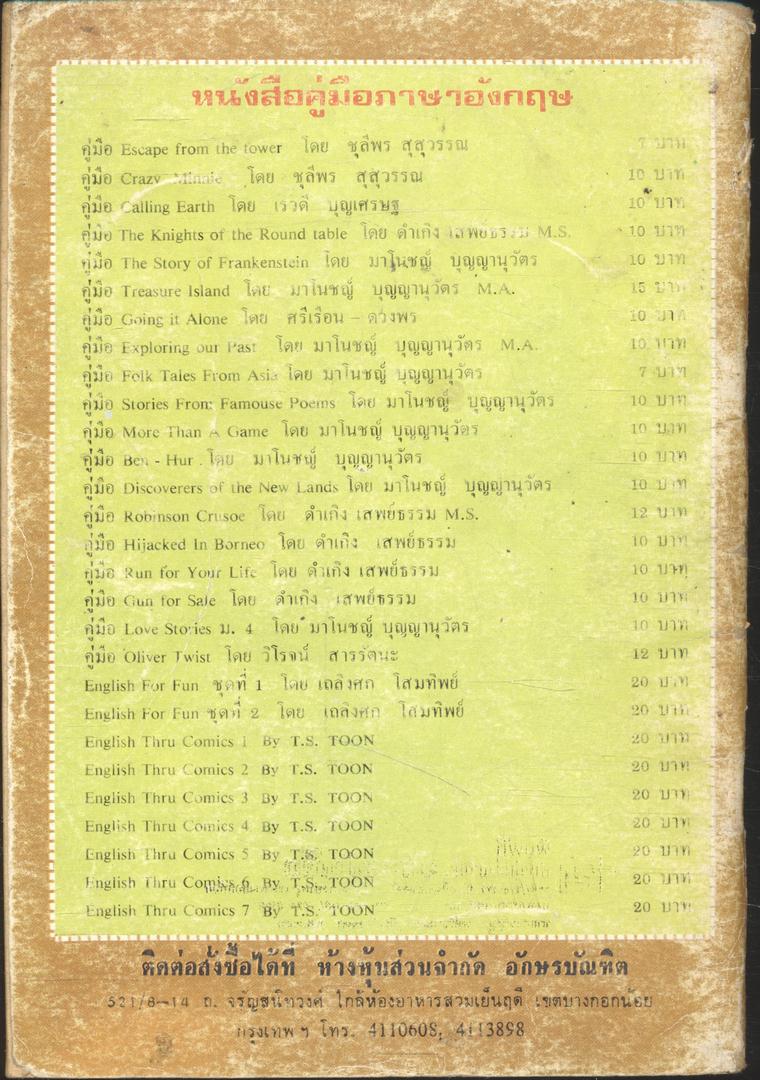 หนังสือคู่มือภาษาอังกฤษ
คู่มือ Escape from the tower โดย ชุลีพร สุสุวรรณ 7 บาท
คู่มือ Crazy Minnie โดย ชุลีพร สุสุวรรณ 10 บาท
คู่มือ Calling Earth โดย เรวดี บุญเศรษฐ 10 บาท
คู่มือ The Knights of the Round table โดย ดำเกิง เสพย์ธรรม M.S. 10 บาท
คู่มือ The Story of Frankenstein โดย มาโนชญ์ บุญญานุวัตร 10 บาท
คู่มือ Treasure Island โดย มาโนชญ์ บุญญานุวัตร M.A. 15 บาท
คู่มือ Going it Alone โดย ศรีเรือน – ดวงพร 10 บาท
คู่มือ Exploring our Past โดย มาโนชญ์ บุญญานุวัตร M.A. 10 บาท
คู่มือ Folk Tales From Asia โดย มาโนชญ์ บุญญานุวัตร 7 บาท
คู่มือ Stories From Famouse Poems โดย มาโนชญ์ บุญญานุวัตร 10 บาท
คุ่มือ More Than A Game โดย มาโนชญ์ บุญญานุวัตร 10 บาท
คู่มือ Ben - Hur โดย มาโนชญ์ บุญญานุวัตร 10 บาท
คู่มือ Discoverers of the New Lands โดย มาโนชญ์ บุญญานุวัตร 10 บาท
คู่มือ Robinson Crusoe โดย ดำเกิง เสพย์ธรรม M.S. 12 บาท
คู่มือ Hijacked In Borneo โดย ดำเกิง เสพย์ธรรม 10 บาท
คู่มือ Run for Your Life โดย ดำเกิง เสพย์ธรรม 10 บาท
คู่มือ Gun for Sale โดย ดำเกิง เสพย์ธรรม 10 บาท
คู่มือ Love Stories ม. 4 โดย มาโนชญ์ บุญญานุวัตร 10 บาท
คู่มือ Oliver Twist โดย วิโรจน์ สารรัตนะ 12 บาท
English For Fun ชุดที่ 1 โดย เถลิงศก โสมทิพย์ 20 บาท
English For Fun ชุดที่ 2 โดย เถลิงศก โสมทิพย์ 20 บาท
English Thru Comics 1 By T.S. TOON 20 บาท
English Thru Comics 2 By T.S. TOON 20 บาท
English Thru Comics 3 By T.S. TOON 20 บาท
English Thru Comics 4 By T.S. TOON 20 บาท
English Thru Comics 5 By T.S. TOON 20 บาท
English Thru Comics 6 By T.S. TOON 20 บาท
English Thru Comics 7 By T.S. TOON 20 บาท
ติดต่อสั่งซื้อได้ที่ ห้างหุ้นส่วนจำกัด อักษรบัณฑิต
521/8–14 ถ. จรัญสนิทวงศ์ ใกล้ห้องอาหารสวมเย็นฤดี เขตบางกอกน้อย
กรุงเทพ ฯ โทร. 4110608, 4113898